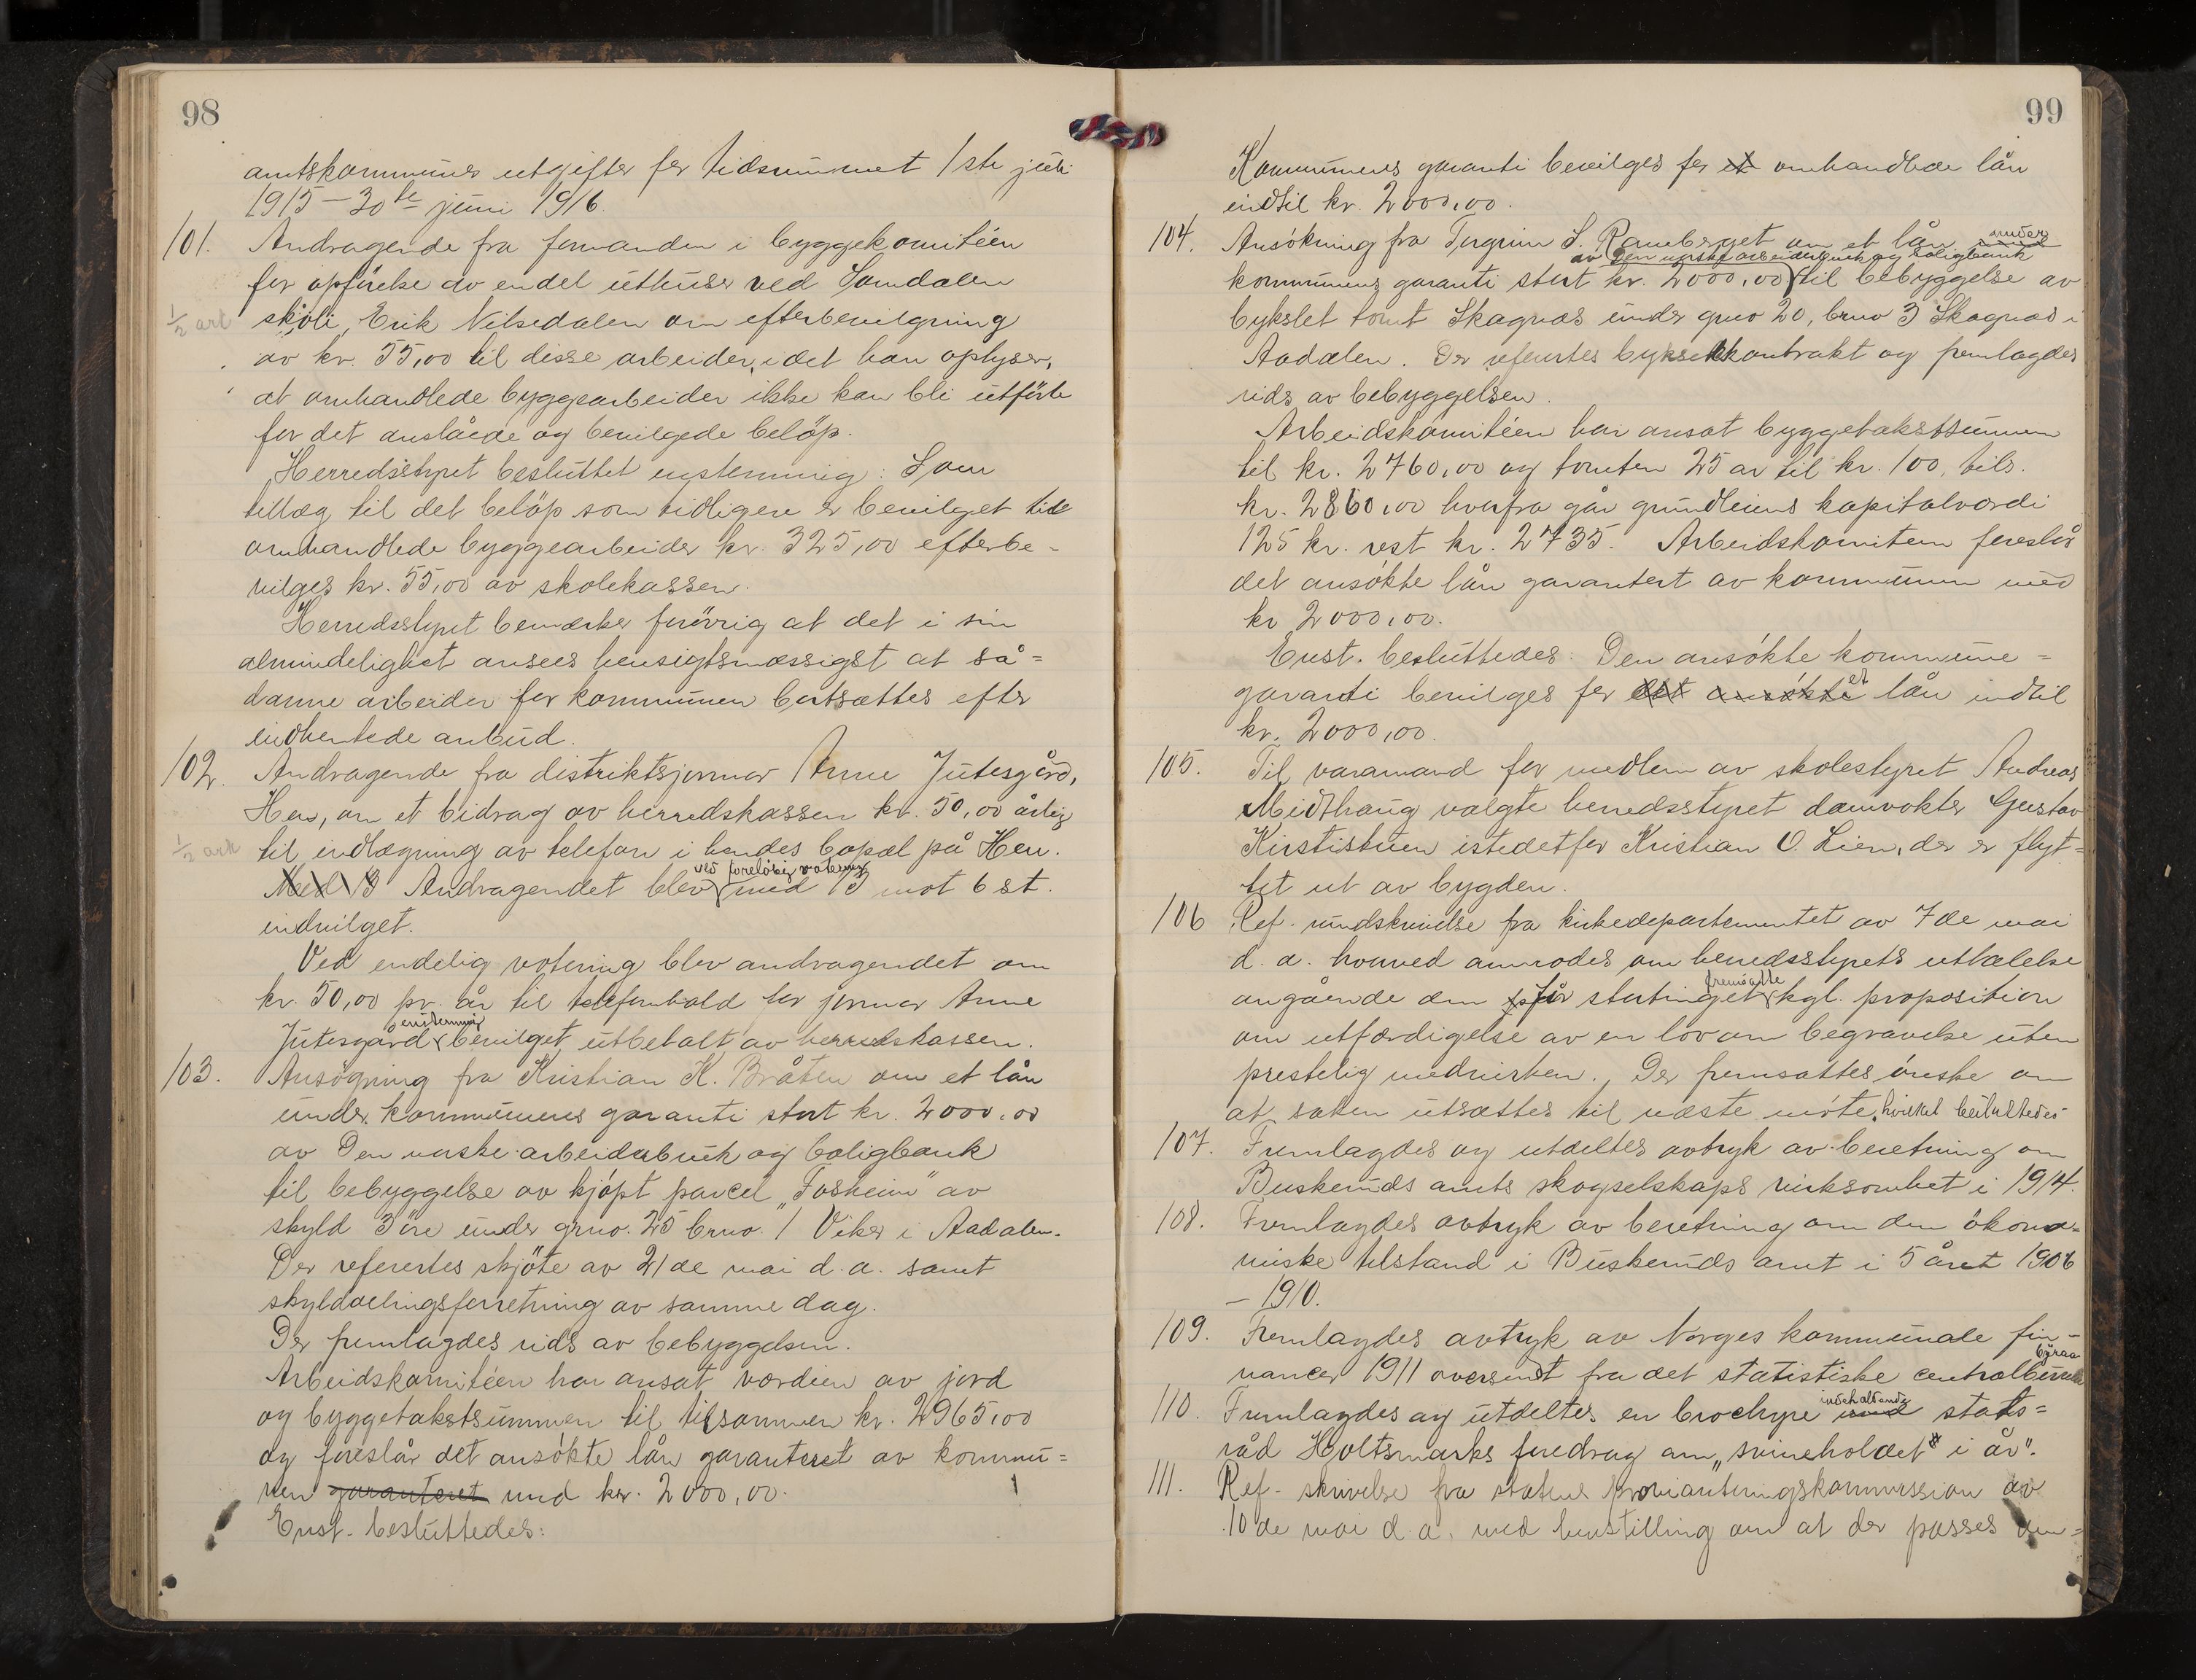 98
amtskommunes utgifter for tidsrummet 1ste juli
1915 – 30te juni 1916.
101. Andragende fra formanden i byggekomitéen
for opførelse av endel uthuser ved Somdalen
½ ark skoli, Erik Nilsedalen om efterbevilgning
av kr. 55,00 til disse arbeider, idet han oplyser,
at omhandlede byggearbeider ikke kan bli utførte
for det anslåede og bevilgede beløp.
Herredsstyret besluttet enstemmig: Som
tillæg til det beløp som tidligere er bevilget til
omhandlede byggearbeider kr. 325,00 efterbe-
vilges kr. 55,00 av skolekassen.
Herredsstyret bemærker forøvrig at det i sin
almindelighet ansees hensigtsmæssigst at så=
danne arbeider for kommunen bortsættes efter
indhentede anbud.
102. Andragende fra distriktsjormor Anne Jutesgård,
Hen, om et bidrag av herredskassen kr. 50,00 årlig
½ ark til indlægning av telefon i hendes bopæl på Hen.
Med 13 Andragendet blev ved foreløbig votering med 13 mot 6 st.
indvilget.
Ved endelig votering blev andragendet om
kr. 50,00 pr. år til telefonhold for jormor Anne
Jutesgård enstemmig bevilget utbetalt av herredskassen.
103. Ansøgning fra Kristian K. Bråten om et lån
under kommunens garanti stort kr. 2000,00
av Den norske arbeiderbruk og boligbank
til bebyggelse av kjøpt parcel „Fosheim" av
skyld 3 øre under grno. 25 brno. 1 Viker i Aadalen.
Der refererte​s skjøte av 21de mai d.a. samt
skylddelingsforretning av samme dag.
Der fremlagdes rids av bebyggelsen.
Arbeidskomitéen har ansat værdien av jord
og byggetakstsummen til tilsammen kr. 2965,00
og foreslår det ansøkte lån garanteret av kommu=
nen garanteret med kr. 2000,00.
Enst. besluttedes:
99
Kommunens garanti bevilges for et omhandlede lån
indtil kr. 2000,00.
104. Ansøkning fra Torgrim S. Ramberget om et lån under
kommunens garanti stort kr. 2000,00 av Den norske arbeiderbruk og boligbank til bebyggelse av
bykslet tomt Skagnæs under grno 20, brno 3 Skagnæs i
Aadalen. Der referertes bykselkontrakt og fremlagdes
rids av bebyggelsen.
Arbeidskomitéen har ansat byggetakstsummen
til kr. 2760,00 og tomten 25 ar til kr. 100, tils.
kr. 2860,00 hvorfra går grundleiens kapitalværdi
125 kr. rest kr. 2735. Arbeidskomiteen foreslår
det ansøkte lån garantert av kommunen med
kr 2000,00.
Enst. besluttedes: Den ansøkte kommune=
garanti bevilges for det ansøkte et lån indtil
kr. 2000,00.
105. Til varamand for medlem av skolestyret Andreas
Midthaug valgte herredsstyret damvokter Gustav
Kirstistuen istedetfor Kristian O. Lien, der er flyt=
tet ut av bygden.
106 Ref. rundskrivelse fra kirkedepartementet av 7de mai
d.a. hvorved anmodes om herredsstyrets uttalelse
angående den for stortinget fremsatte kgl. proposition
om utfærdigelse av en lov om begravelse uten
prestelig medvirken. Der fremsattes ønske om
at saken utsættes til næste møte, hvilket besluttedes
107. Fremlagdes og utdeltes avtryk av beretning om
Buskeruds amts skogselskaps virksomhet i 1914.
108. Fremlagdes avtryk av beretning om den økono=
miske tilstand i Buskeruds amt i 5 året 1906
– 1910.
109. Fremlagdes avtryk av Norges kommunale fin-
nancer 1911 oversendt fra det statistiske centralbyraa
110. Fremlagdes og utdeltes en brochyre med indeholdende stats=
råd Holtsmarks foredrag om „svineholdet i år".
111. Ref. skrivelse fra statens provianteringskommission av
10de mai d.a. med henstilling om at der passes